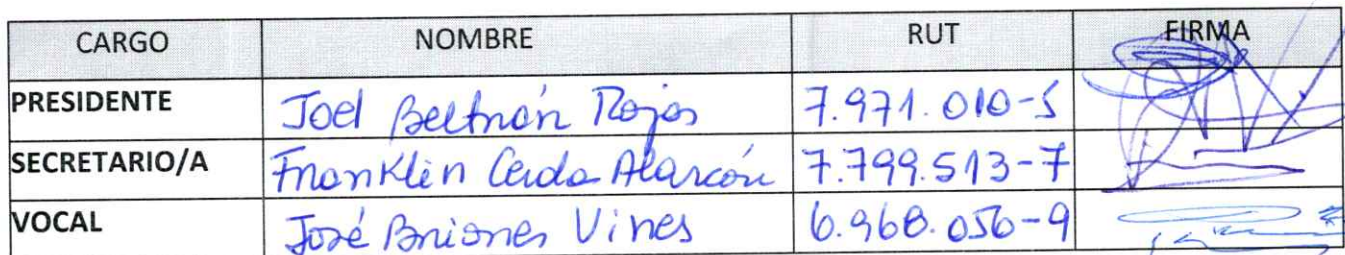 CARGO NOMBRE RUT FIRMA
PRESIDENTE Joel Beltrán Rojas 7.971.010-5
SECRETARIO/A Franklin Cerda Alarcón 7.799.513-7
VOCAL José Briones Vines 6.968.056-9